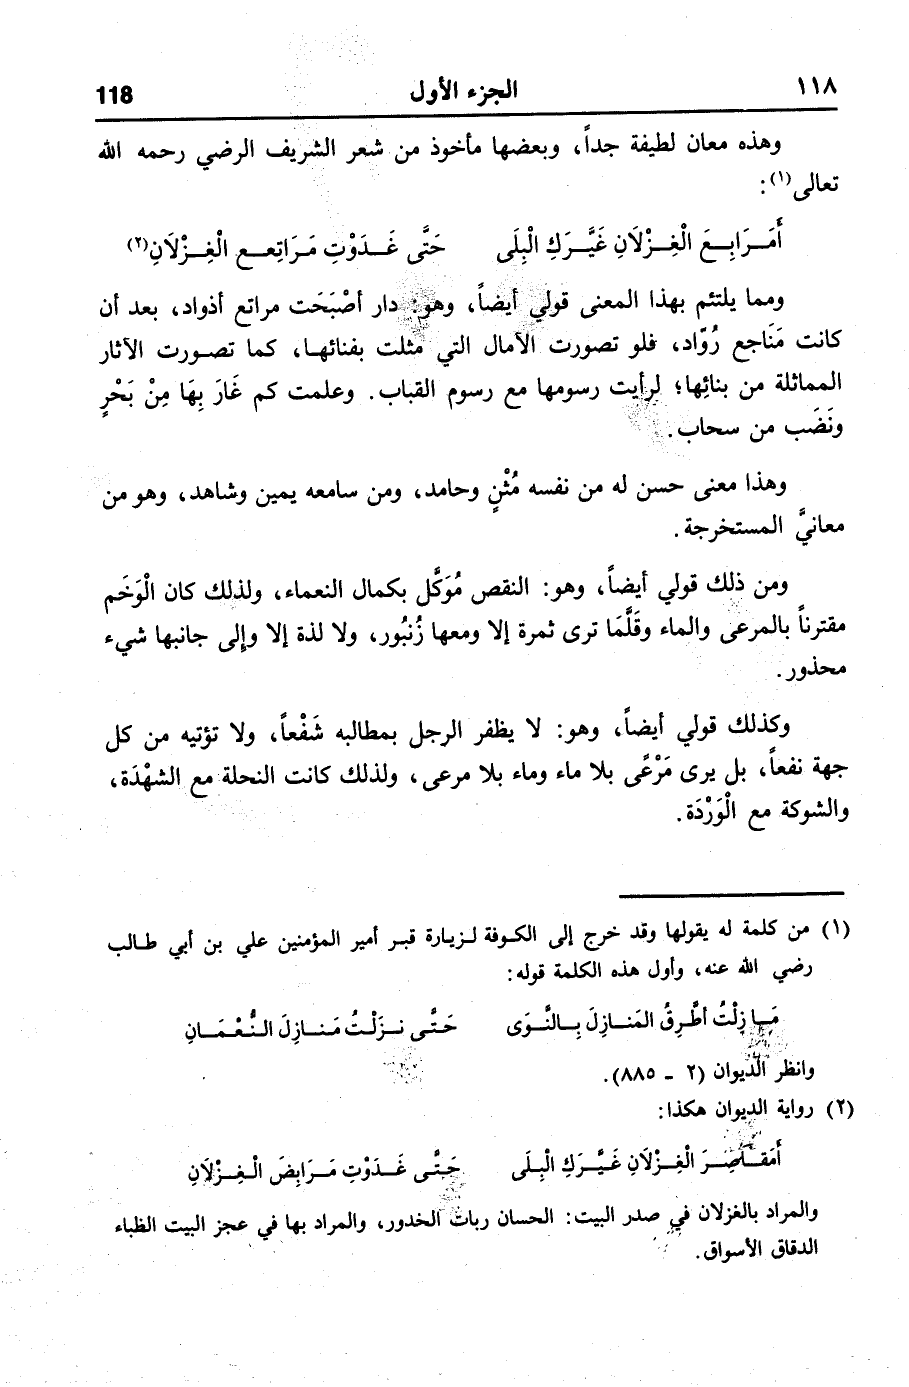 ١١٨ الجزء الأول 118
وهذه معان لطيفة جداً، وبعضها مأخوذ من شعر الشريف الرضي رحمه الله
تعالى(١):
أَمَرَابِعَ الْغِزْلَانِ غَيَّرَكِ الْبِلَى حَتَّى غَدَوْتِ مَرَاتِعَ الْغِزْلَانِ(٢)
ومما يلتئم بهذا المعنى قولي أيضاً، وهو: دار أَصْبَحَت مراتع أذواد، بعد أن
كانت مَنَاجع رُوّاد، فلو تصورت الآمال التي مثلت بفنائها، كما تصورت الآثار
المماثلة من بنائِها؛ لرأيت رسومها مع رسوم القباب. وعلمت كم غَارَ بِهَا مِنْ بَحْرٍ
ونَضَب من سحاب.
وهذا معنى حسن له من نفسه مُثْنٍ وحامد، ومن سامعه يمين وشاهد، وهو من
معانيَّ المستخرجة.
ومن ذلك قولي أيضاً، وهو: النقص مُوَكَّل بكمال النعماء، ولذلك كان الْوَخَم
مقترناً بالمرعى والماء وقَلَّمَا ترى ثمرة إلا ومعها زُنبُور، ولا لذة إلا وإلى جانبها شيء
محذور.
وكذلك قولي أيضاً، وهو: لا يظفر الرجل بمطالبه شَفْعاً، ولا تؤتيه من كل
جهة نفعاً، بل يرى مَرْعًى بلا ماء وماء بلا مرعى، ولذلك كانت النحلة مع الشهْدَة،
والشوكة مع الْوَرْدَة.
(١) من كلمة له يقولها وقد خرج إلى الكوفة لزيارة قبر أمير المؤمنين علي بن أبي طالب
رضي الله عنه، وأول هذه الكلمة قوله:
مَا زِلْتُ أطَّرِقُ المَنازِلَ بِالنَّوَى حَتَّى نزَلْتُ مَنازِلَ النُّعْمَانِ
وانظر الديوان (٢ - ٨٨٥).
(٢) رواية الديوان هكذا:
أَمَقَاصِرَ الْغِزْلَانِ غَيَّرَكِ الْبِلَى حَتَّى غَدَوْتِ مَرَابِضَ الْغِزْلَانِ
والمراد بالغزلان في صدر البيت: الحسان ربات الخدور، والمراد بها في عجز البيت الظباء
الدقاق الأسواق.